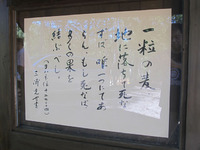 一粒の麦
地に落ちて死な
ずば 唯一つにてあ
らん、もし死なば
多くの果を
結ぶべし、
三浦光世